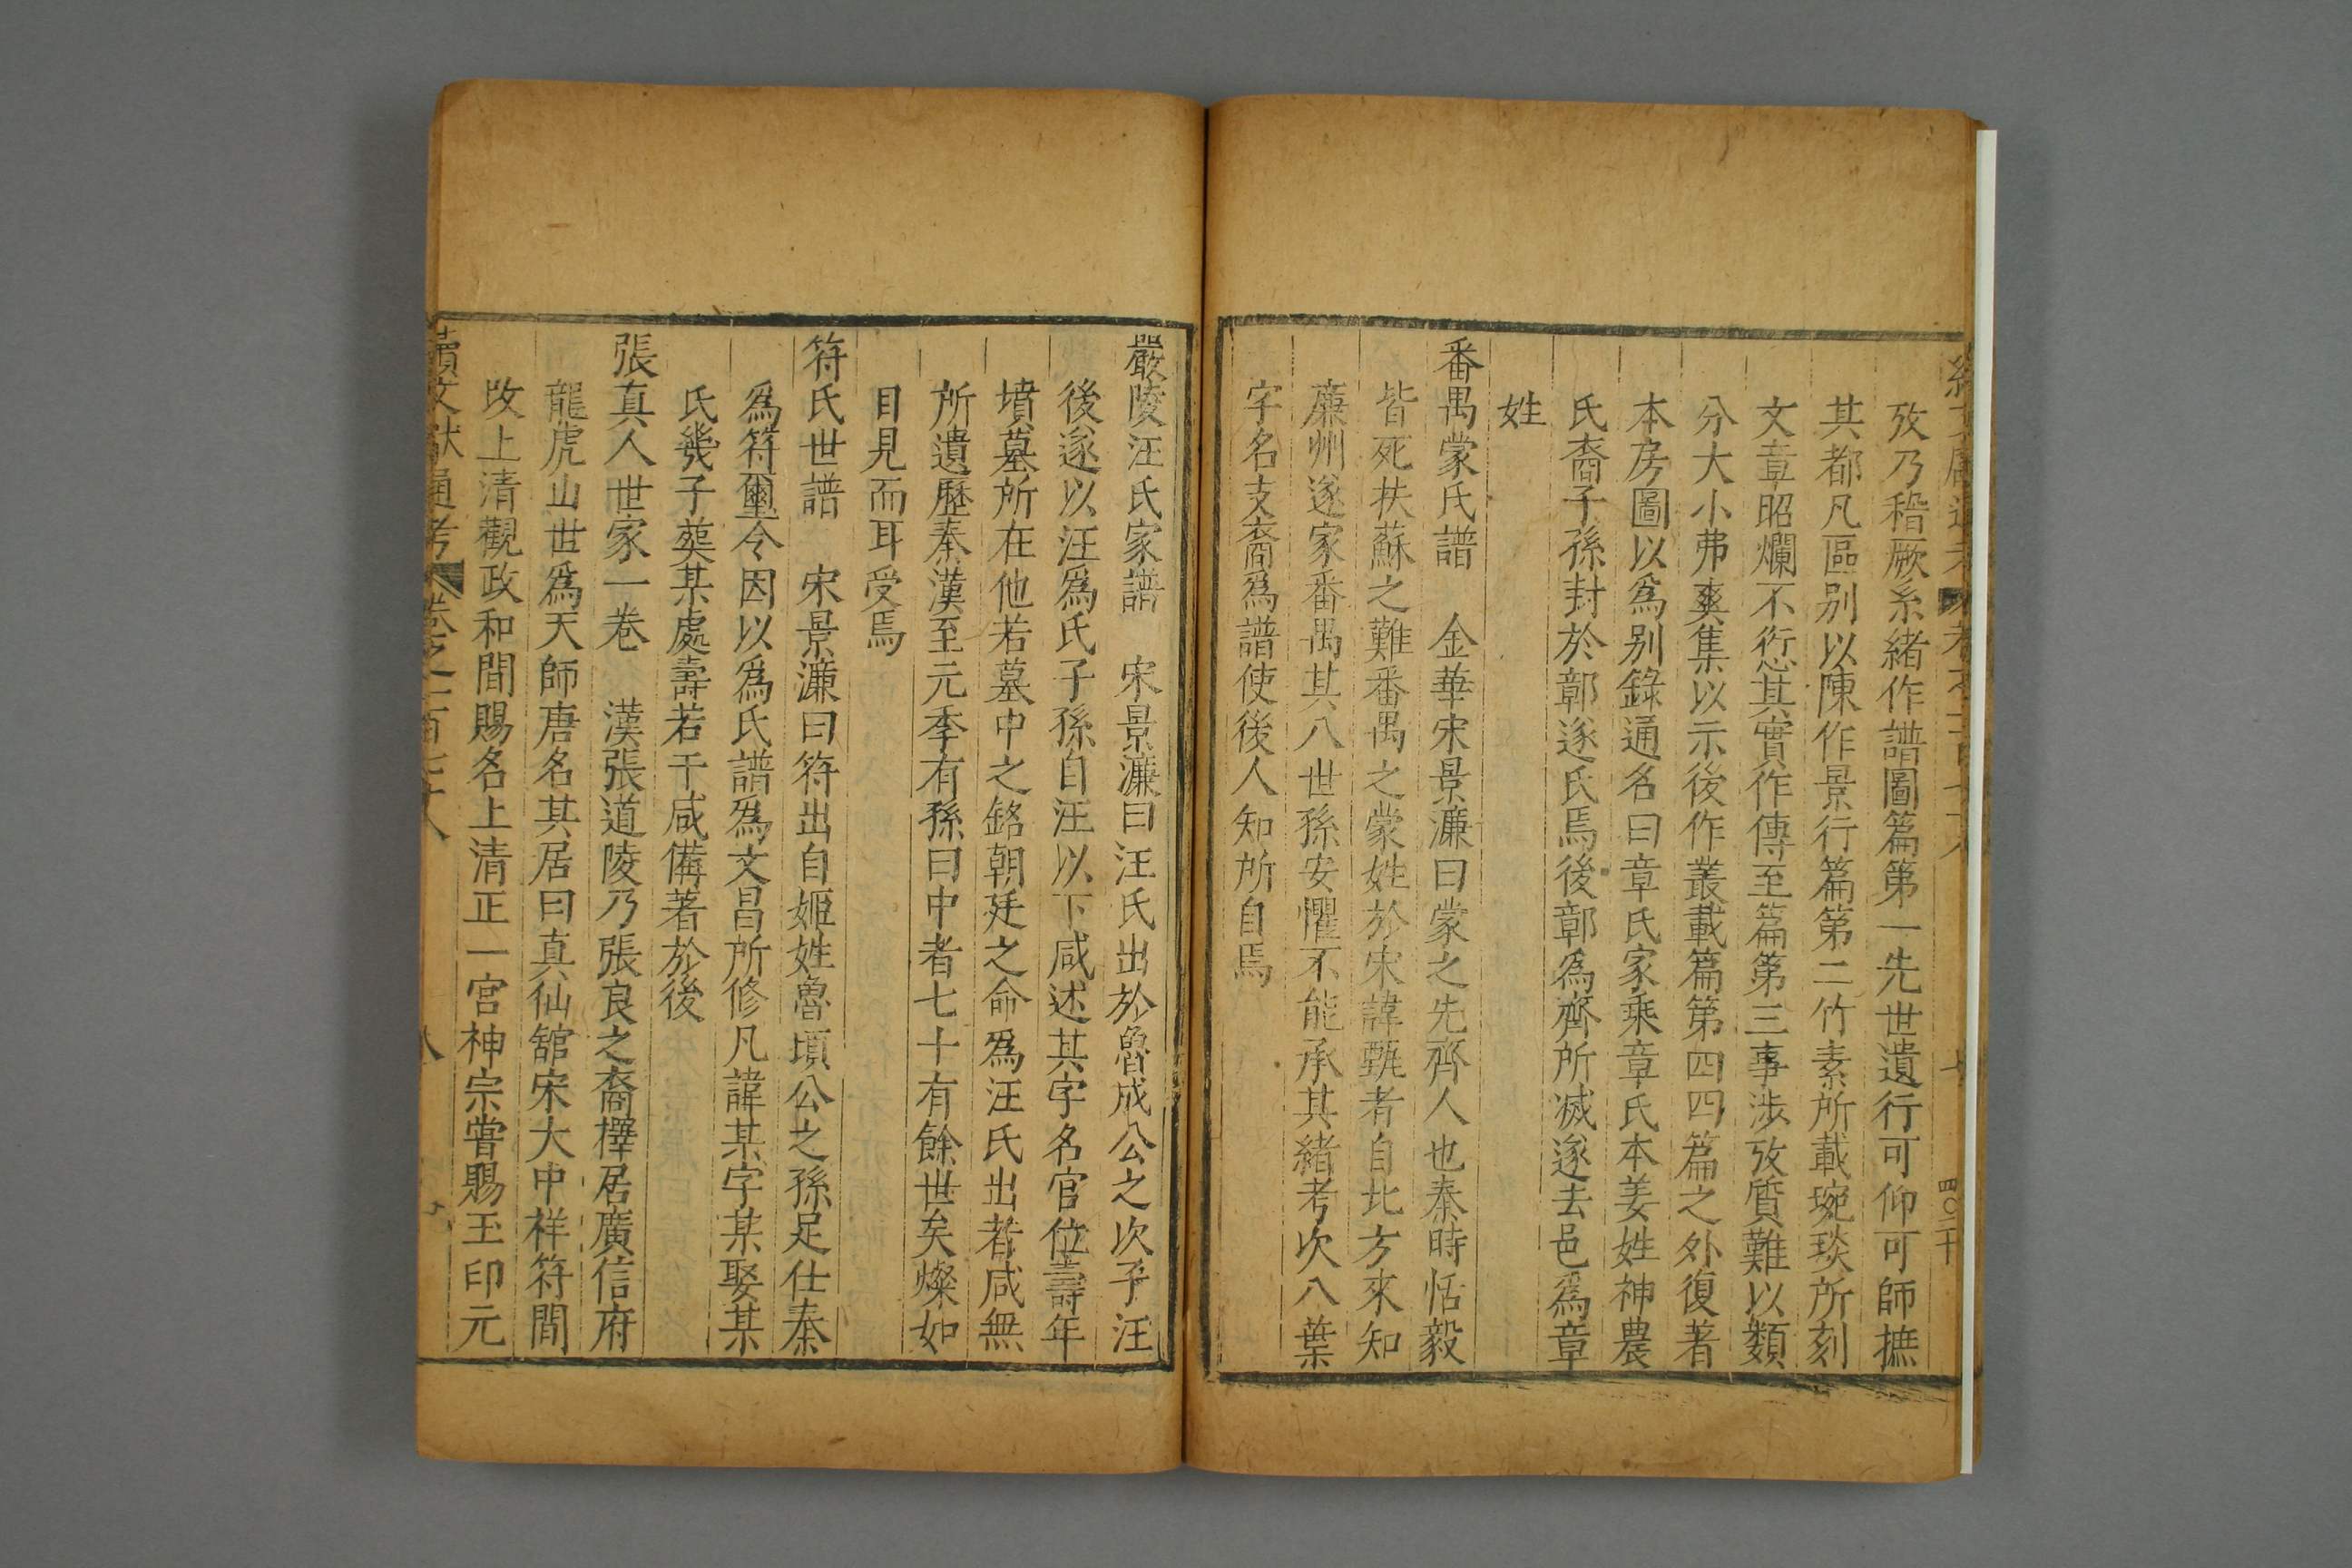 攷乃稽厥系緒作譜圖篇第一先世遺行可仰可師摭
其都凡區别以陳作景行篇第二竹素所載琬琰所刻
文章昭爛不愆其實作傳至篇第三事涉攷質難以類
分大小弗爽集以示後作叢載篇第四四篇之外復著
本房圖以爲别錄通名曰章氏家乘章氏本姜姓神農
氏裔子孫封於鄣遂氏焉後鄣爲齊所滅遂去邑爲章
姓
番禺蒙氏譜 金華宋景濂曰蒙之先齊人也秦時恬毅
皆死扶蘇之難番禺之蒙姓於宋諱甄者自北方來知
廉州遂家番禺其八世孫安懼不能承其緒考次八葉
字名支裔爲譜使後人知所自焉
嚴陵汪氏家譜 宋景濂曰汪氏出於魯成公之次子汪
後遂以汪爲氏子孫自汪以下咸述其字名官位壽年
墳墓所在他若墓中之銘朝廷之命爲汪氏出者咸無
所遺歷秦漢至元季有孫曰中者七十有餘世矣燦如
目見而耳受焉
符氏世譜 宋景濂曰符出自姬姓魯頃公之孫足仕秦
爲符璽令因以爲氏譜爲文昌所修凡諱某字某娶某
氏幾子葬某處壽若干咸備著於後
張真人世家一卷 漢張道陵乃張良之裔擇居廣信府
龍虎山世爲天師唐名其居曰真仙舘宋大中祥符間
改上清觀政和間賜名上清正一宮神宗嘗賜玉印元
續文獻通考 卷之一百七十八 八